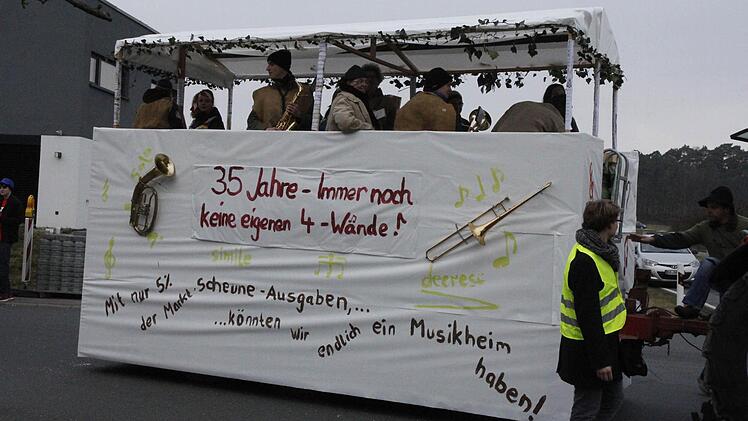 35 Jahre - Immer noch
keine eigenen 4-Wände!
simile
Mit nur 5% der Markt-scheune-Ausgaben,...
...könnten wir endlich ein Musikheim haben!